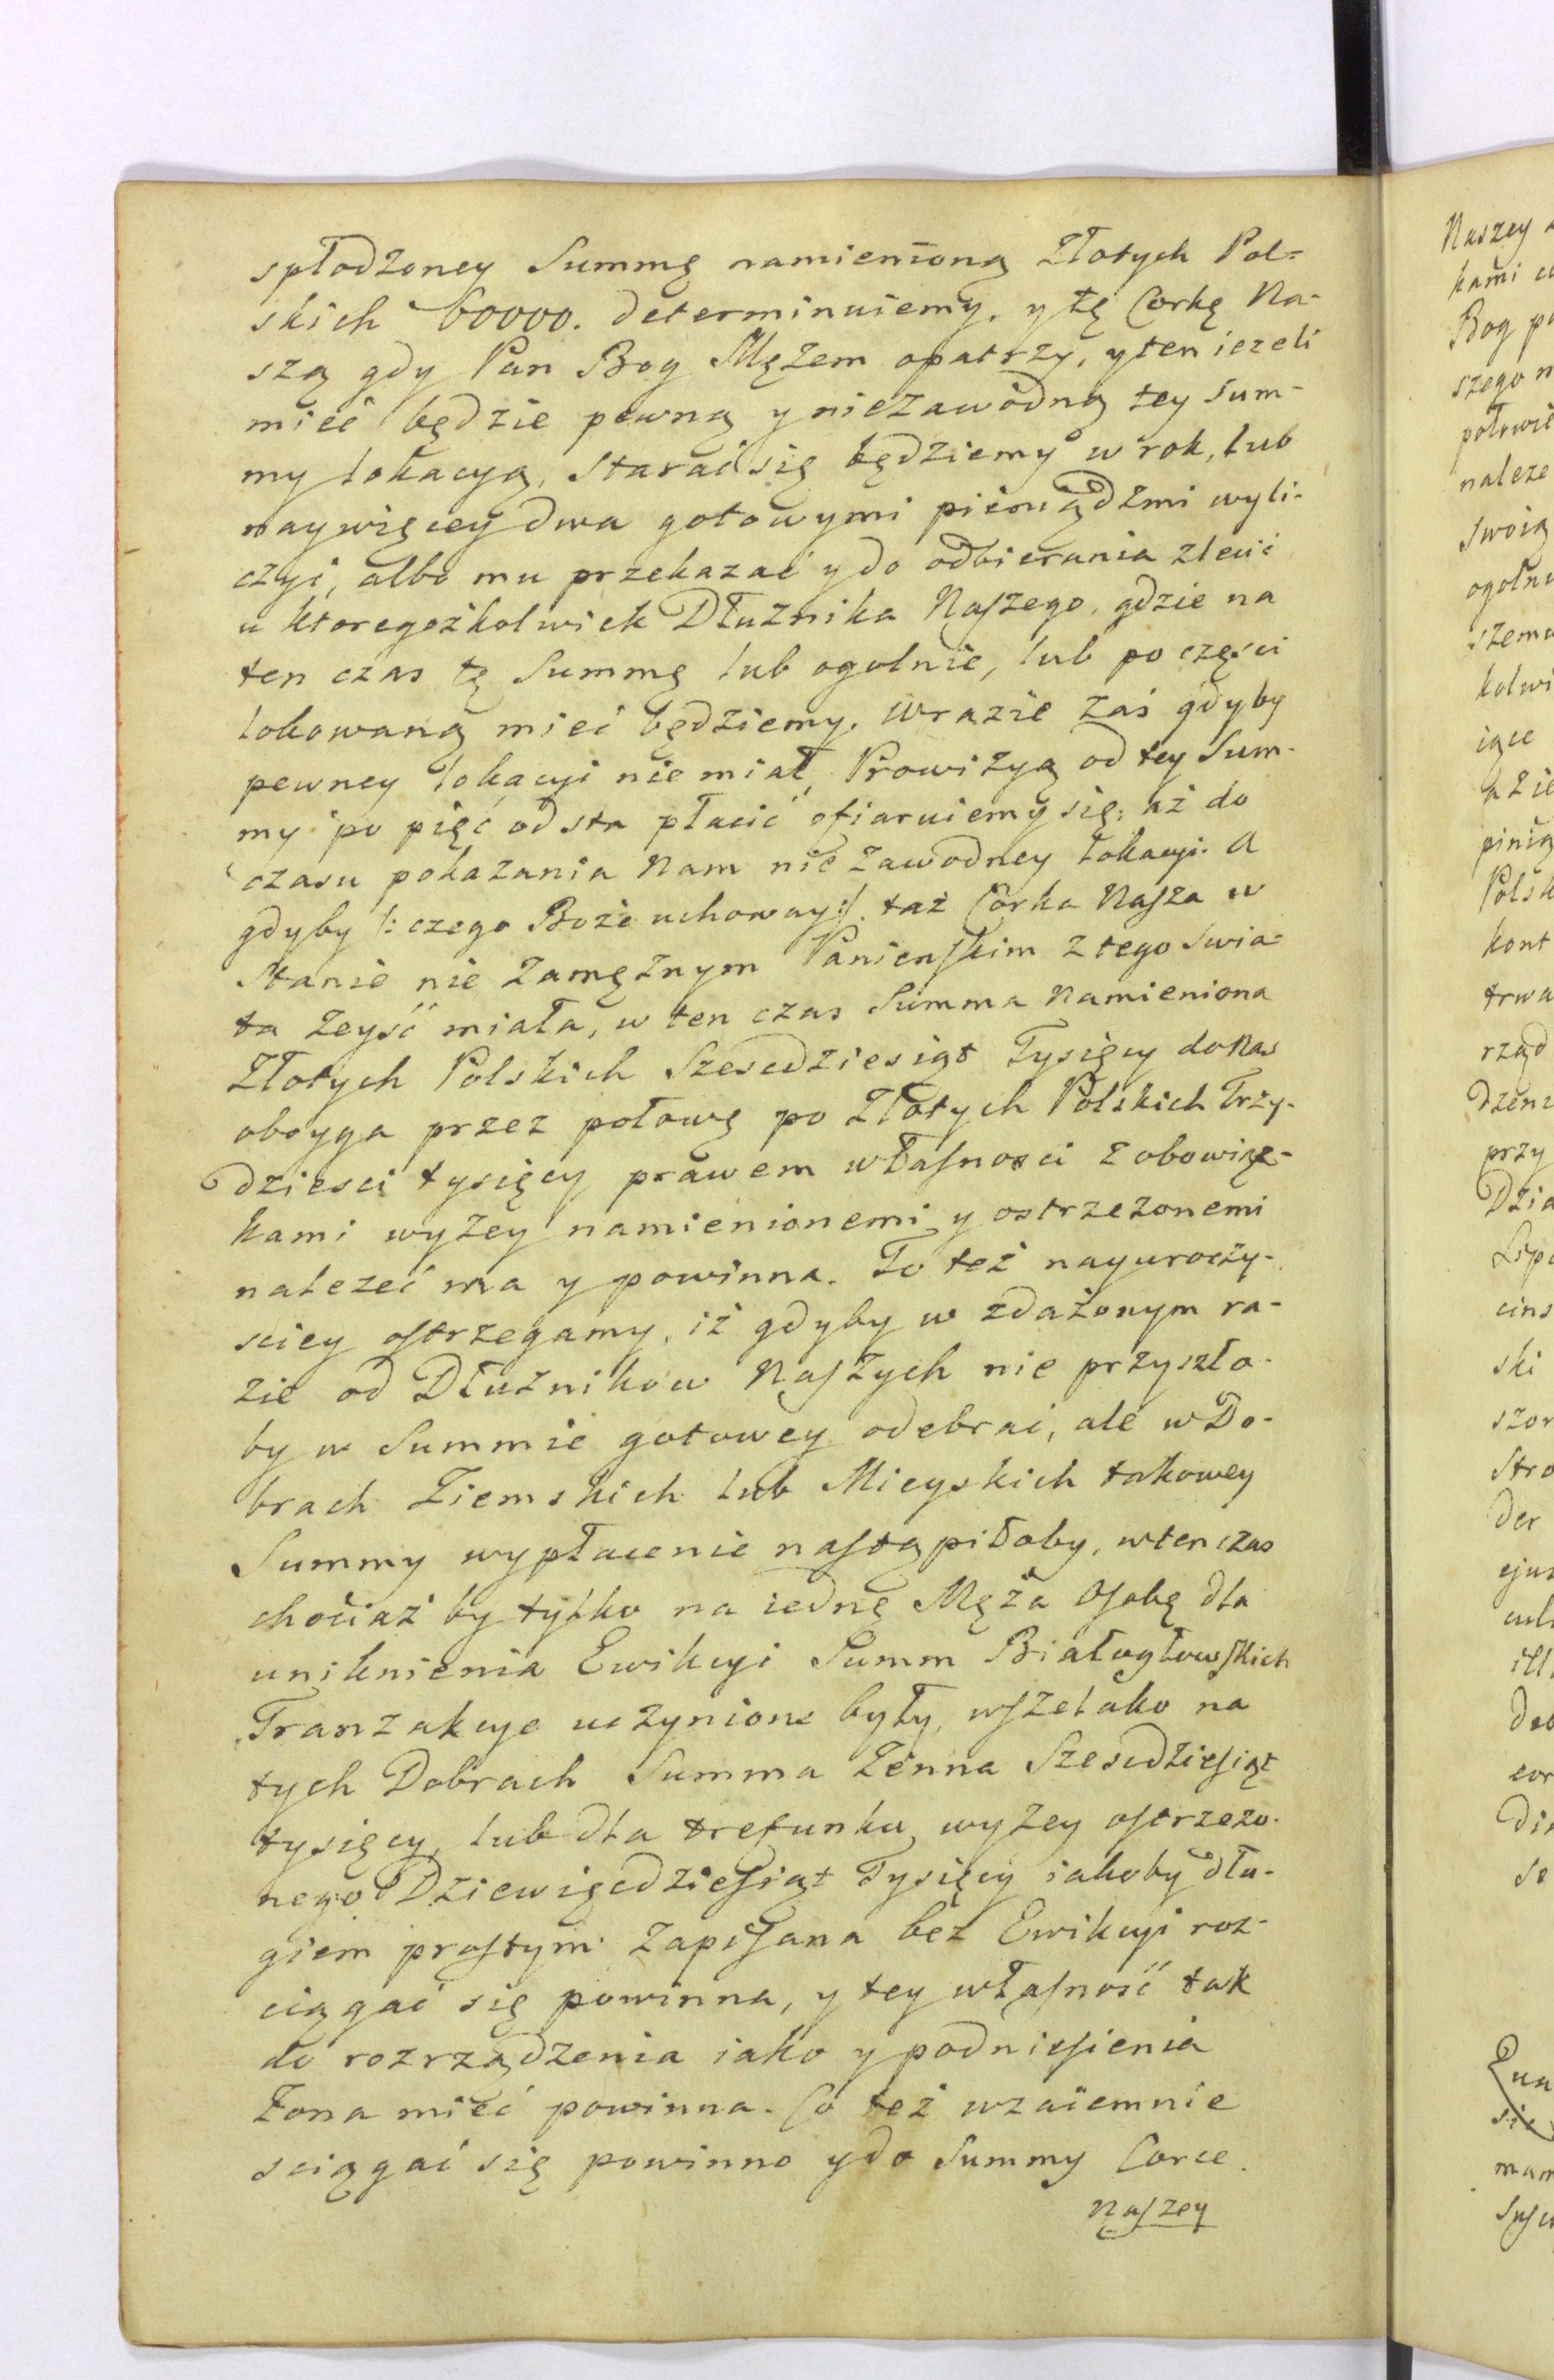 spłodzoney Summę namienioną Złotych Pol=
skich 60000. determinuiemy. y tę Corkę Na-
szą gdy Pan Bog Mężem opatrzy, y ten iezeli
mieć będzie pewną y niezawodną tey Sum-
my lokacyą, starać się będziemy w rok, lub
naywięcey dwa gotowymi pieniądzmi wyli-
czyć, albo mu przekazać y do odbierania zlecić
u ktoregożkolwiek Dłużnika Naszego, gdzie na
ten czas tę Summę lub ogolnie, lub po częsci
lokowaną mieć będziemy. W razie zaś gdyby
pewney lokacyi nie miał, Prowizyą od tey Sum-
my po pięć od sta płacić ofiaruiemy się, aż do
czasu pokazania Nam nie zawodney lokacyi. A
gdyby /: czego Boże uchoway :/ taż Corka Nasza w
stanie nie zamężnym Panienskim z tego Swia-
ta zeyść miała, w ten czas Summa Namieniona
Złotych Polskich Szescdziesiąt Tysięcy do Nas
oboyga przez połowę po Złotych Polskich Trzy-
dziesci tysięcy prawem własnosci z obowiąz-
kami wyżey namienionemi y ostrzeżonemi
należeć ma y powinna. To też nayuroczy-
sciey ostrzegamy, iż gdyby w zdażonym ra-
zie od Dłużnikow Naszych nie przyszło-
by w Summie gotowey odebrać, ale w Do-
brach Ziemskich lub Mieyskich takowey
Summy wypłacenie nastąpiłoby, wtenczas
chociaż by tylko na iednę Męża Osobę dla
uniknienia Ewikcyi Summ Białogłowskich
Tranzakcye uczynione były, wszelako na
tych Dobrach Summa Żenna Szescdziesiąt
tysięcy, lub dla trefunku wyżey ostrzeżo-
nego Dziewięcdziesiąt Tysięcy iakoby dłu-
giem prostym zapisana bez Ewikcyi roz-
ciągać się powinna, y tey własność tak
do rozrządzenia iako y podniesienia
Żona mieć powinna. Co też wzaiemnie
sciągać się powinno y do Summy Corce
Naszey
Naszey
kami
Bog
szego
połowie
należe
Swoią
szemu
kolwi
iące
Polsk
kont
trwa
rząd
dzeni
przy
Dzia
Lipc
cins
ski
der
mam